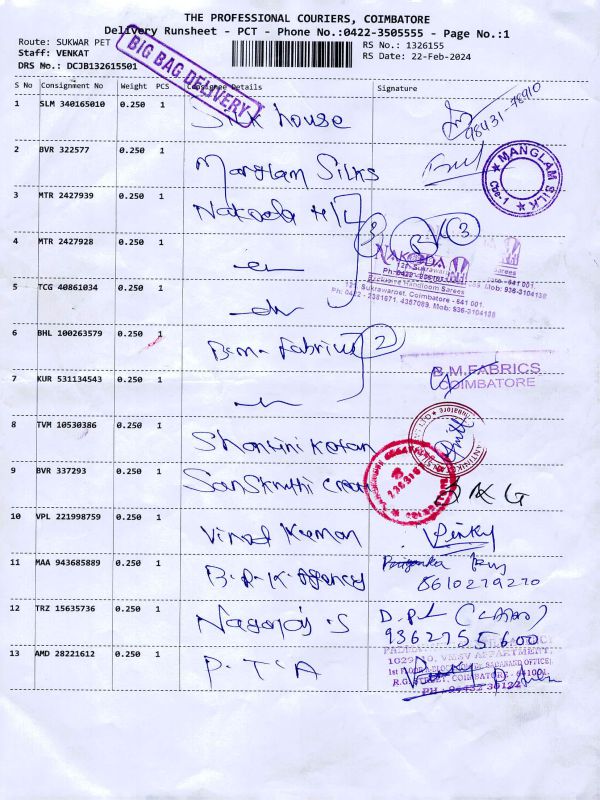 THE PROFESSIONAL COURIERS, COIMBATORE
Delivery Runsheet - PCT - Phone No.:0422-3505555 - Page No.:1
Route: SUKWAR PET
Staff: VENKAT
DRS No.: DCJB132615501
BIG BAG DELIVERY
RS No.: 1326155
RS Date: 22-Feb-2024
S No Consignment No Weight PCS Consignee Details Signature
1 SLM 340165010 0.250 1 Silk house 98431-78910
2 BVR 322577 0.250 1 Manglam Silks
MANGLAM SILK
Cbe-1
3 MTR 2427939 0.250 1 Nakoda H/L 3 3
4 MTR 2427928 0.250 1
NAKODA
Exclusive Handloom Sarees
121, Sukrawarpet, Coimbatore - 641 001.
Ph: 0422 - 2381671, 4357089, Mob: 936-3104138
5 TCG 40861034 0.250 1
6 BHL 100263579 0.250 1 B.m. Fabrics 2
B.M.FABRICS
COIMBATORE
7 KUR 531134543 0.250 1
8 TVM 10530386 0.250 1 Shantini Kotan
9 BVR 337293 0.250 1 Sanskruthi
10 VPL 221998759 0.250 1 Vinod Kumar
11 MAA 943685889 0.250 1 B.P.K. Agency Priyanka
8610279270
12 TRZ 15635736 0.250 1 Nagaraj.S
9362755600
13 AMD 28221612 0.250 1 P.T.A